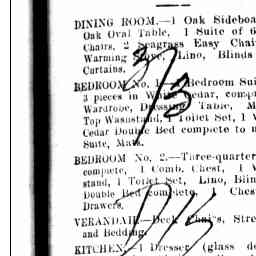 DINING ROOM.—1 Oak Sideboa
Oak Oval Table, 1 Suite of 6
Chairs, 2 Seagrass Easy Chai
Warming Stove, Lino, Blinds
Curtains.
BEDROOM No. 1.—Bedroom Sui
3 pieces in White Cedar, comp
Wardrobe, Dressing Table, M
Top Washstand, Toilet Set, 1 W
Cedar Double Bed complete to m
Suite, Mats.
BEDROOM No. 2.—Three-quarter
complete, 1 Comb. Chest, 1 W
stand, 1 Toilet Set, Lino, Blin
Double Bed complete, 1 Ches
Drawers.
VERANDAH.—Deck Chairs, Stre
and Bedding.
KITCHEN.—1 Dresser (glass do